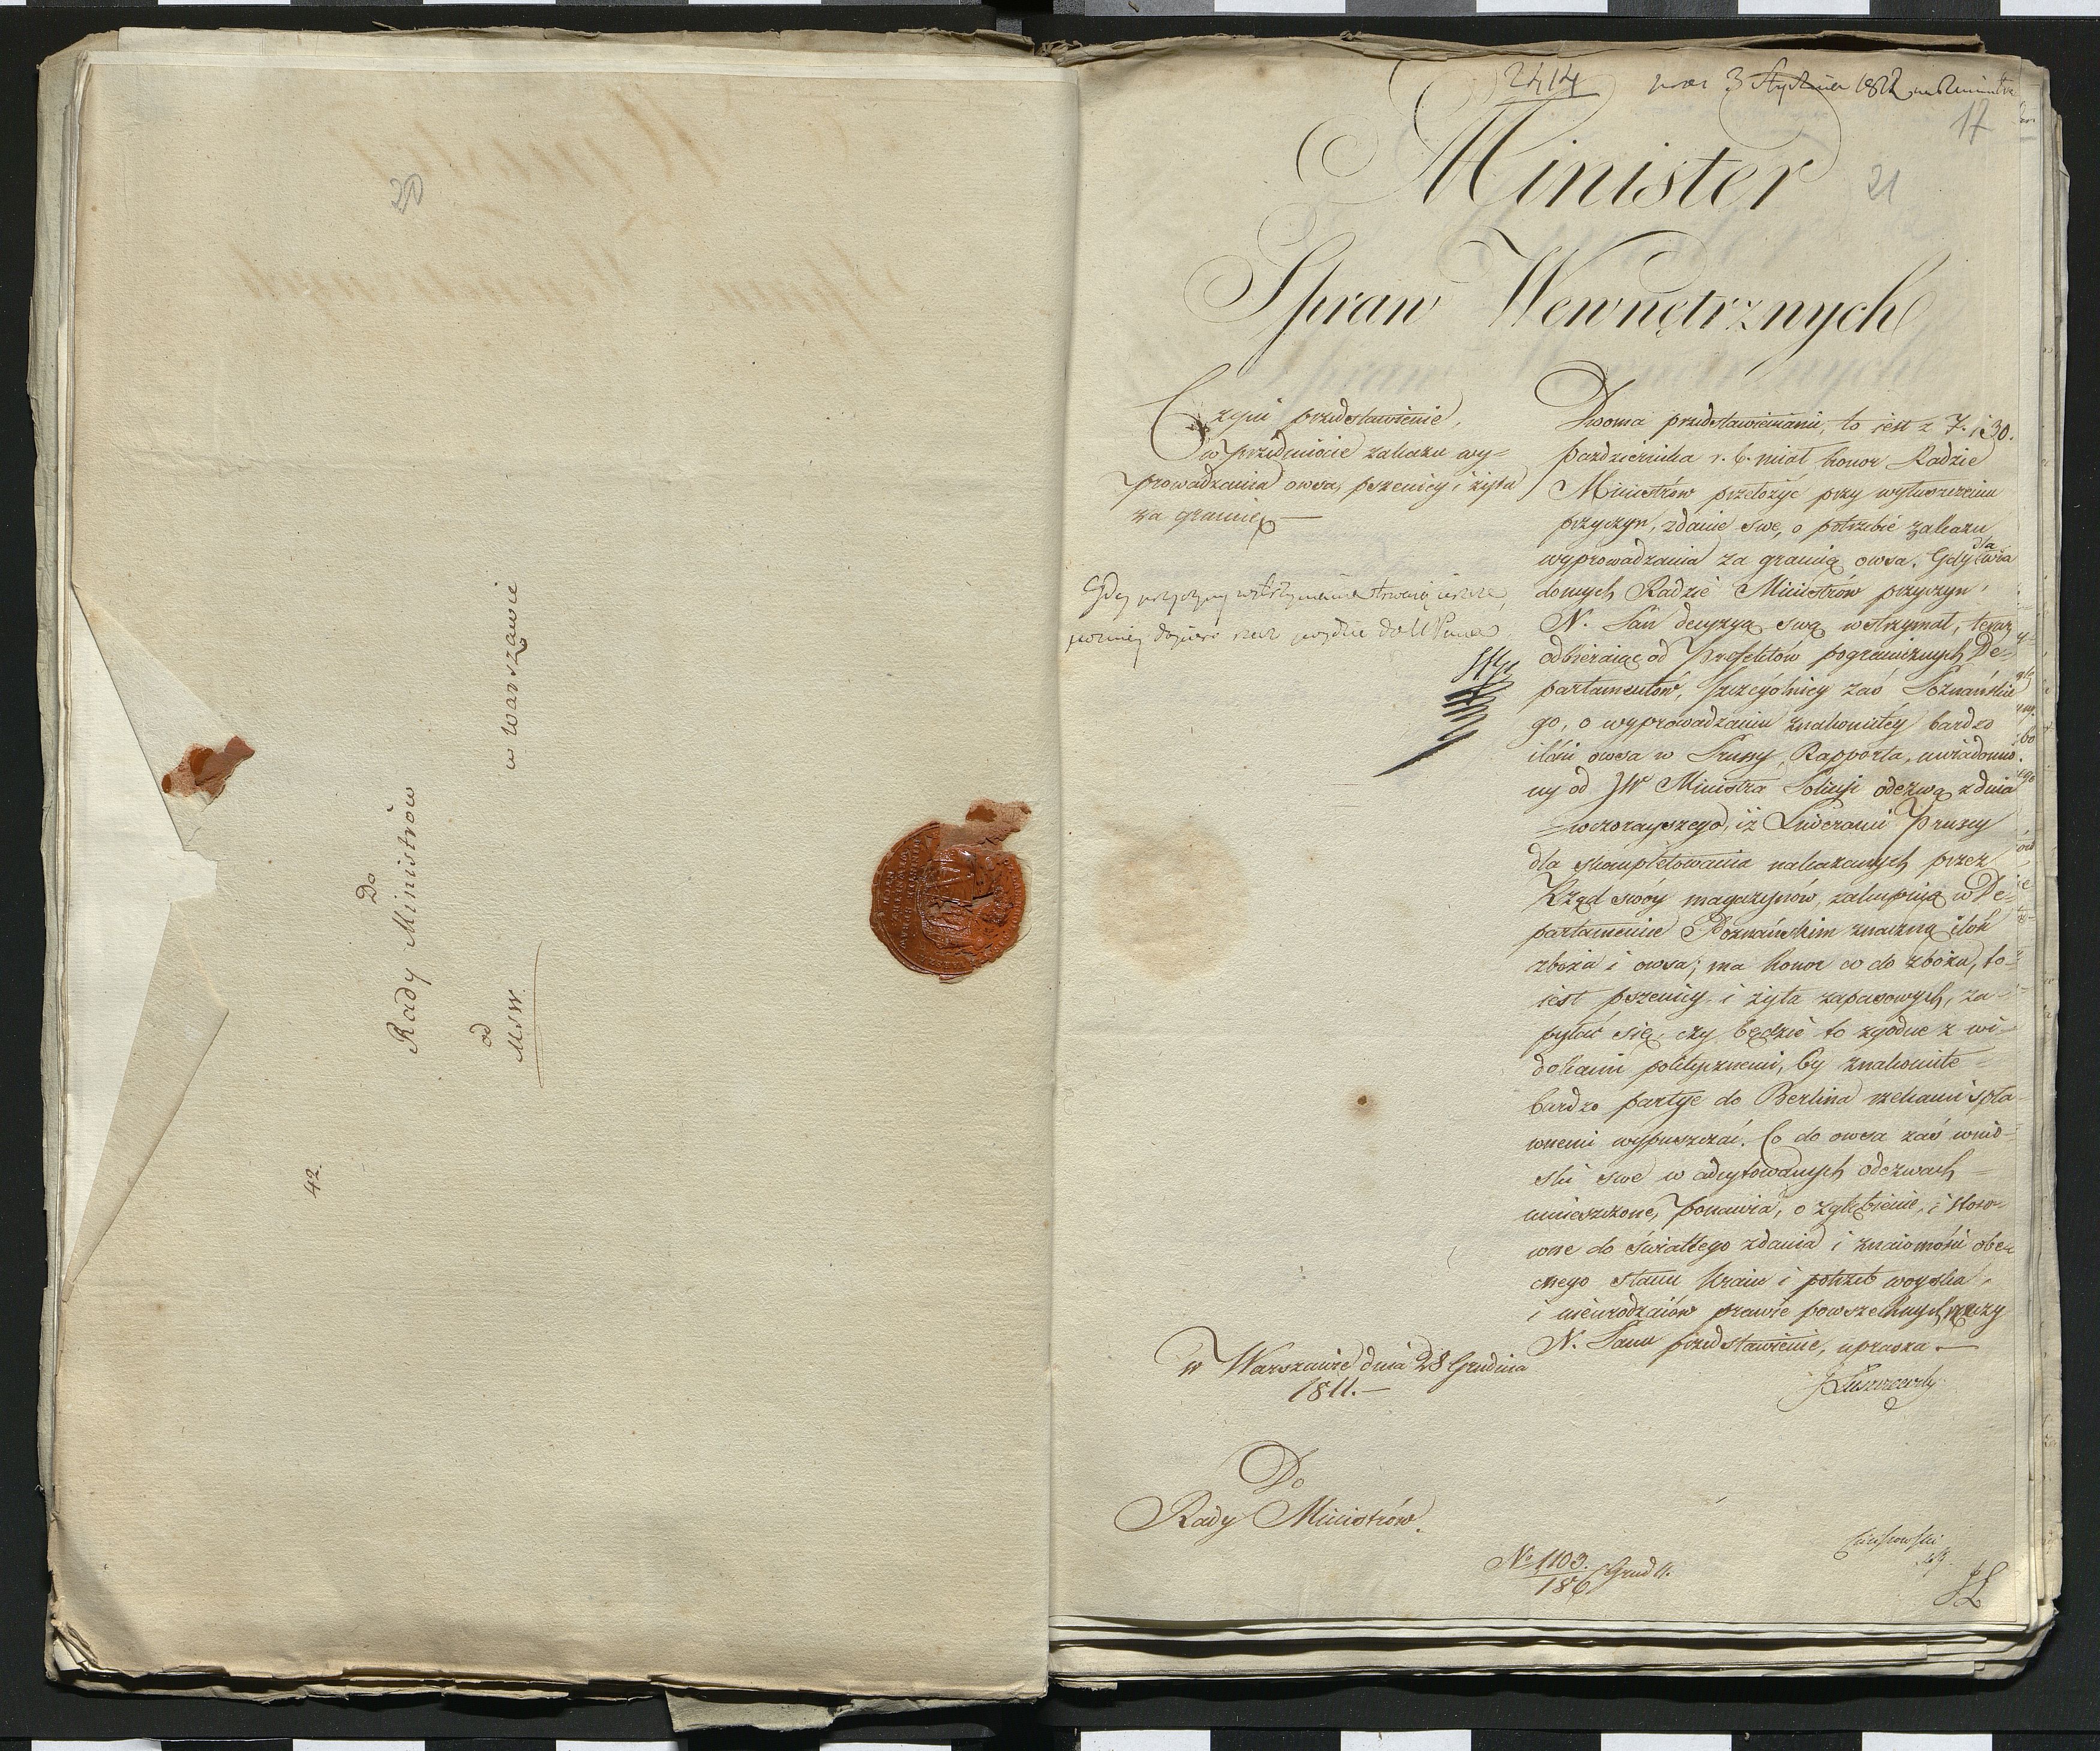 20
Do
Rady Ministrów
w Warszawie
od
MSW.
42.
2414
3 Stycznia 1812
17
21
Minister
Spraw Wewnętrznych
Czyni przedstawienie,
w przedmiocie zakazu wy=
prowadzania owsa, pszenicy i żyta
za granicę —
Gdy przyczyny wstrzymania trwaią ieszcze,
do N Pana
Dwoma przedstawieniami, to iest z 7. i 30.
Pazdziernika r. b. miał honor Radzie
Ministrów przełożyć przy wyłuszczeniu
przyczyn, zdanie swe, o potrzebie zakazu
wyprowadzania za granicę owsa. Gdy dla wia
domych Radzie Ministrów przyczyn,
N. Pan decyzyą swą wstrzymał, teraz
odbieraiąc od Prefektów pogranicznych De=
partamentów, szczególniey zaś Poznańskie
go, o wyprowadzaniu znakomitey bardzo
ilości owsa w Prussy, Rapporta, uwiadomio
ny od JW Ministra Policyi odezwą z dnia
wczorayszego, iż Liweranci Pruscy
dla skompletowania nakazanych przez
Rząd swóy magazynów, zakupuią w De=
partamencie Poznańskim znaczną ilość
zboża i owsa; ma honor co do zboża, to
iest pszenicy i żyta zapasowych, za=
pytać się, czy będzie to zgodne z wi=
dokami politycznemi, by znakomite
bardzo partye do Berlina rzekami spła
wnemi wypuszczać. Co do owsa zaś wnio=
ski swe w adcytowanych odezwach
umieszczone, ponawia, o zgłębienie, i stoso=
wne do światłego zdania i znaiomości obe=
cnego stanu kraiu i potrzeb woyska,
i nieurodzaiów prawie powszechnych rzeczy
N. Panu przedstawienie, uprasza. —
w Warszawie dnia 28 Grudnia
1811. —
JŁuszczewski
Do
Rady Ministrów.
No 1103.
186 Grud 11.
JŁ